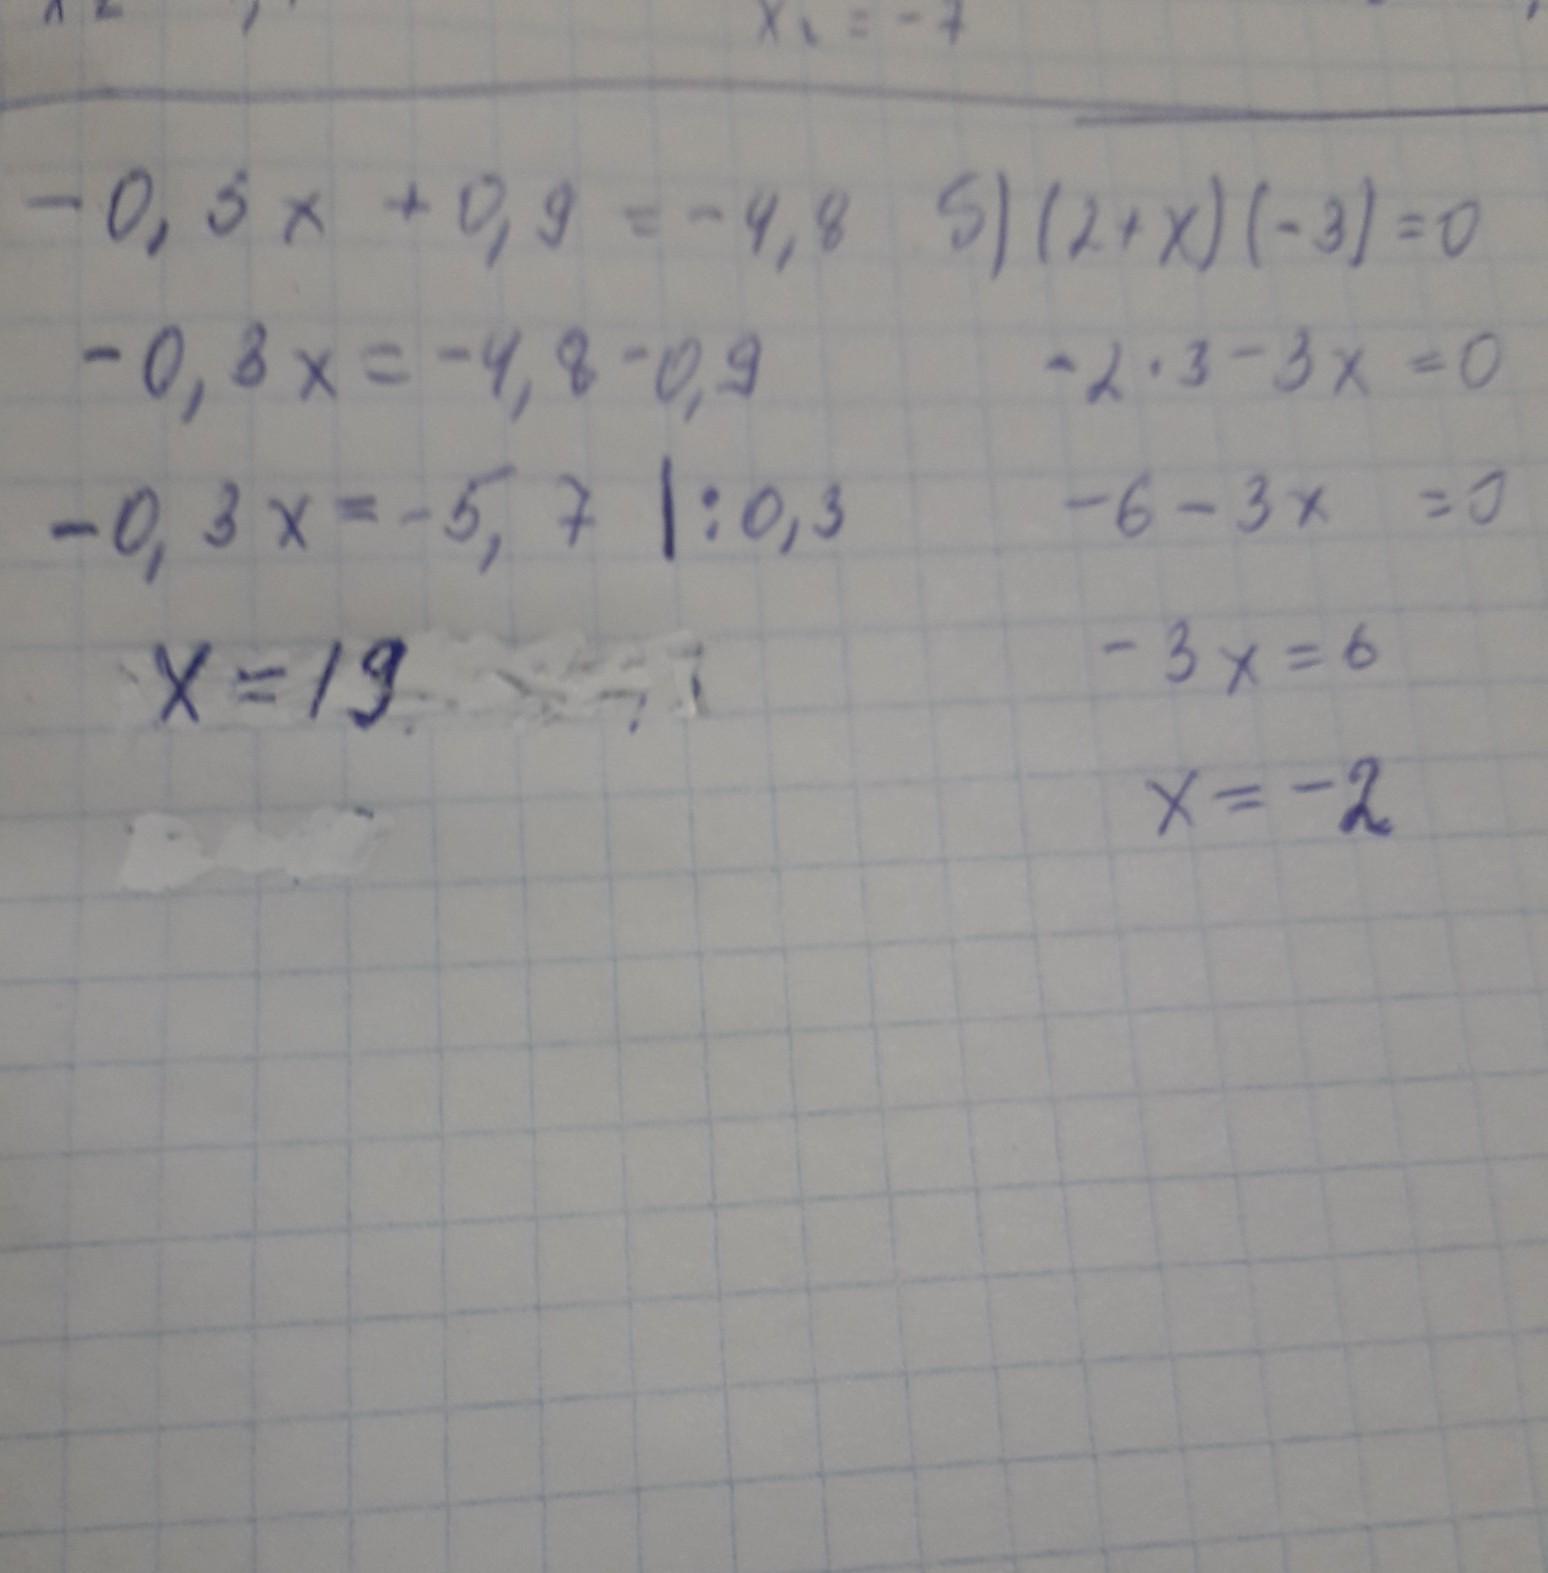 x₂ = -7
-0,3x + 0,9 = -4,8
-0,3x = -4,8 - 0,9
-0,3x = -5,7 |:0,3
x = 19
5) (2+x)(-3) = 0
-2·3 - 3x = 0
-6 - 3x = 0
-3x = 6
x = -2